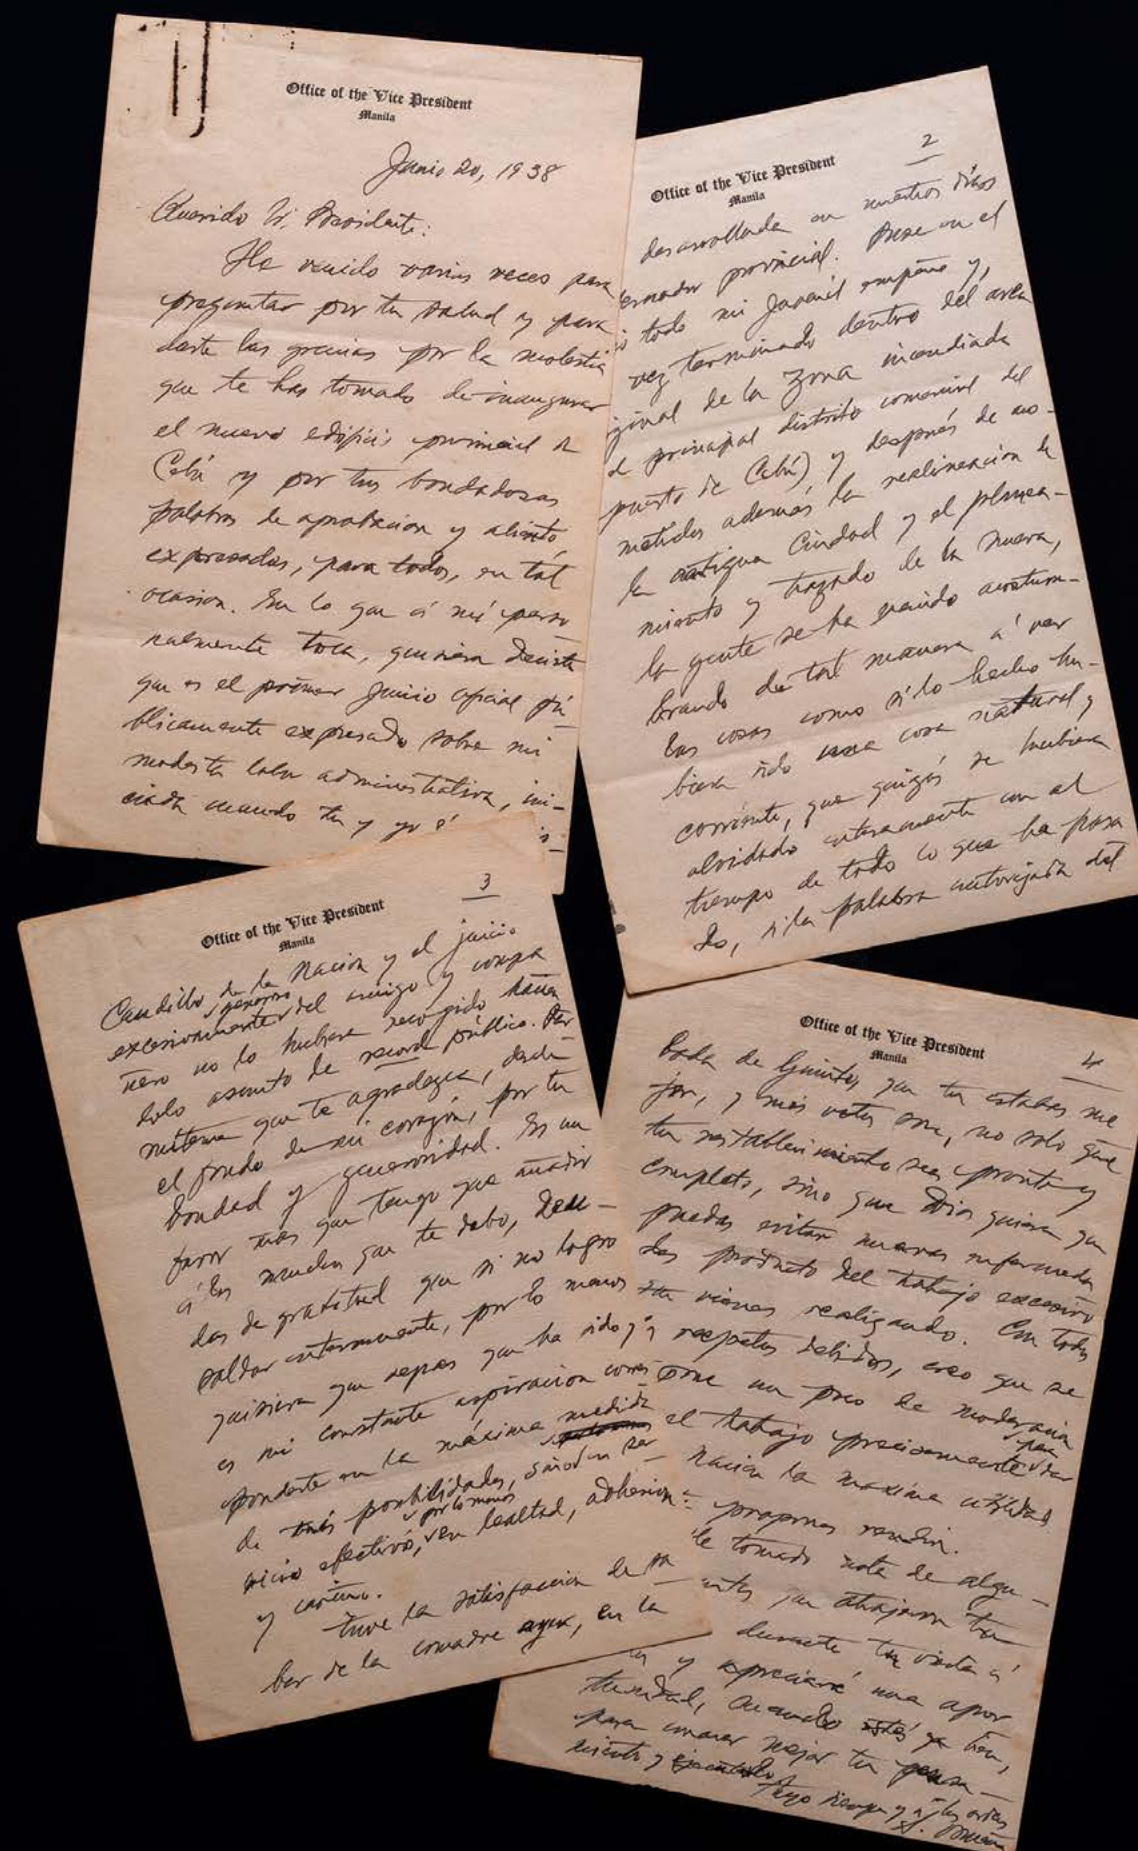 Office of the Vice President
Manila
Junio 20, 1938
Querido Sr. Presidente:
He venido varias veces para
preguntar por tu salud y para
darte las gracias por la molestia
que te has tomado de inaugurar
el nuevo edificio provincial de
Cebú y por tus bondadosas
palabras de aprobacion y aliento
expresadas, para todos, en tal
ocasion. En lo que á mí perso
nalmente toca, quisiera decirte
que es el primer juicio oficial pú
blicamente expresado sobre mi
modesta labor administrativa, ini-
ciada cuando tu y yo é
2
Office of the Vice President
Manila
desarrollada en nuestros días
ernador provincial. Puse en el
todo mi juvenil empeño y,
vez terminado dentro del area
ginal de la zona incendiada
el principal distrito comercial del
puerto de Cebú) y después de aco-
metidos además la realineacion de
la antigua Ciudad y el planea-
miento y trazado de la nueva,
la gente se ha venido acostum-
brando de tal manera á ver
las cosas como si lo hecho hu-
biera sido una cosa natural y
corriente, que quizás se hubiera
olvidado enteramente con el
tiempo de todo lo que ha pasa
do, si la palabra autorizada del
3
Office of the Vice President
Manila
Caudillo de la Nacion y el juicio
excesivamente generoso del amigo y compa
ñero no lo hubiese recogido
solo asunto de record público. Per
míteme que te agradezca, desde
el fondo de mi corazón, por tu
bondad y generosidad. Es un
favor más que tengo que añadir
á los muchos que te debo, deu-
das de gratitud que si no logro
saldar enteramente, por lo menos
quisiera que sepas que ha sido y
es mi constante aspiracion corres
ponderte en la máxima medida
de mis posibilidades, sinó en ser
vicio efectivo, por lo menos en lealtad, adhesion
y cariño.
Tuve la satisfaccion de sa
ber de la comadre ayer, en la
4
Office of the Vice President
Manila
boda de Guinto, que tu estabas me
jor, y mis votos son, no solo que
tu restablecimiento sea pronto y
completo, sino que Dios quiera que
puedas evitar nuevas enfermeda
des producto del trabajo excesivo
que vienes realizando. Con todos
respetos debidos, creo que se
pone un poco de moderacion
el trabajo precisamente para dar
nacion la maxima utilidad
propones rendir.
He tomado nota de algu-
que atrajeron tu
durante tu visita á
y apreciaré una opor
tunidad, cuando estés ya bien,
para conocer mejor tu pensa-
miento y ejecutarlo.
Tuyo siempre y á las ordenes
S. Osmeña